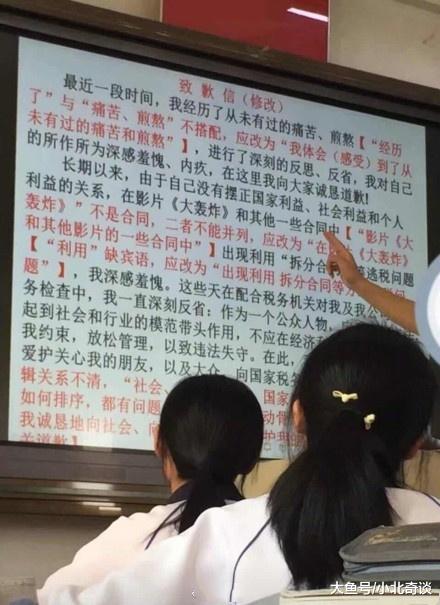 致歉信（修改）
最近一段时间，我经历了从未有过的痛苦、煎熬【“经历
了”与“痛苦、煎熬”不搭配，应改为“我体会（感受）到了从
未有过的痛苦和煎熬”】，进行了深刻的反思、反省，我对自己
的所作所为深感羞愧、内疚，在这里我向大家诚恳道歉！
长期以来，由于自己没有摆正国家利益、社会利益和个人
利益的关系，在影片《大轰炸》和其他一些合同中【“影片《大
轰炸》”不是合同，二者不能并列，应改为“在影片《大轰炸》
和其他影片的一些合同中”】出现利用“拆分合同”等逃税问题
【“利用”缺宾语，应改为“出现利用 拆分合同等方
题”】，我深感羞愧。这些天在配合税务机关对我及我公
务检查中，我一直深刻反省：作为一个公众人物，
起到社会和行业的模范带头作用，不应在经济利
我约束，放松管理，以致违法失守。在此，
爱护关心我的朋友，以及大众、向国家税务
辑关系不清，“社会、 国家
如何排序，都有问题
我诚恳地向社会、向
关道歉】
大鱼号/小北奇谈